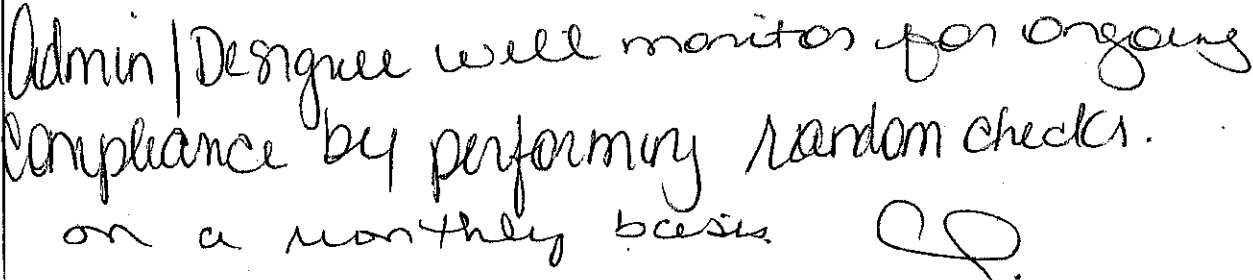 Admin/Designee will monitor for ongoing
compliance by performing random checks.
on a monthly basis